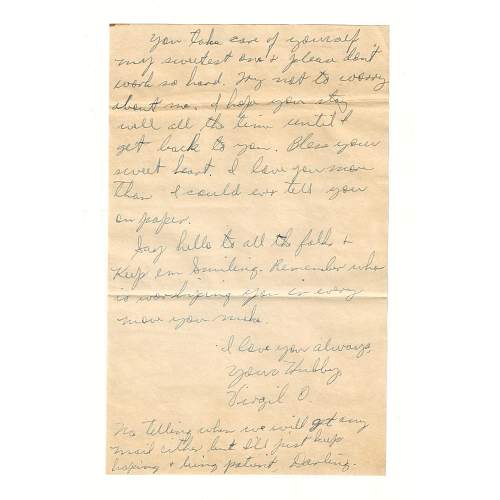 You take care of yourself
my sweetest one & please don't
work so hard. Try not to worry
about me. I hope you stay
well all the time until I
get back to you. Bless your
sweet heart. I love you more
than I could ever tell you
on paper.
Say hello to all the folks &
Keep em Smiling. Remember who
is worshiping you in every
move you make.
I love you always,
Your Hubby
Virgil O.
No telling when we will get any
mail either but I'll just keep
hoping & being patient, Darling.